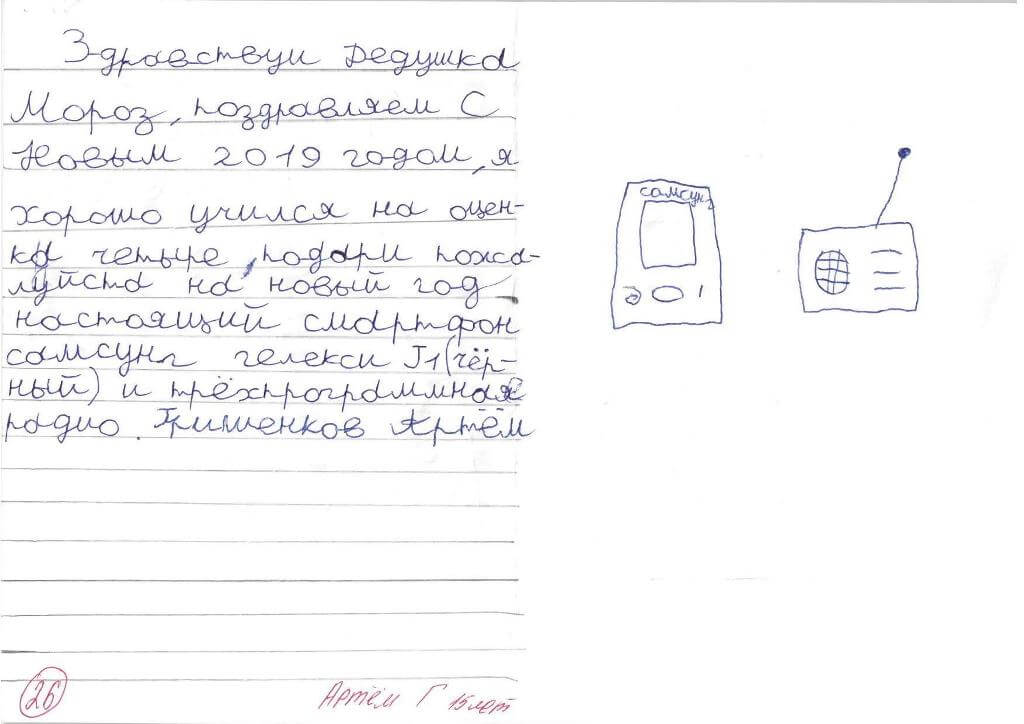 Здравствуи Дедушка
Мороз, поздравляем С
Новым 2019 годом, я
хорошо учился на оцен-
ка четыре, подари пожа-
луйста на новый год
настоящий смартфон
самсунг гелекси J1(чёр-
ный) и трёхпрограммная
радио. Гришенков Артём
самсунг
26
Артём Г 15 лет